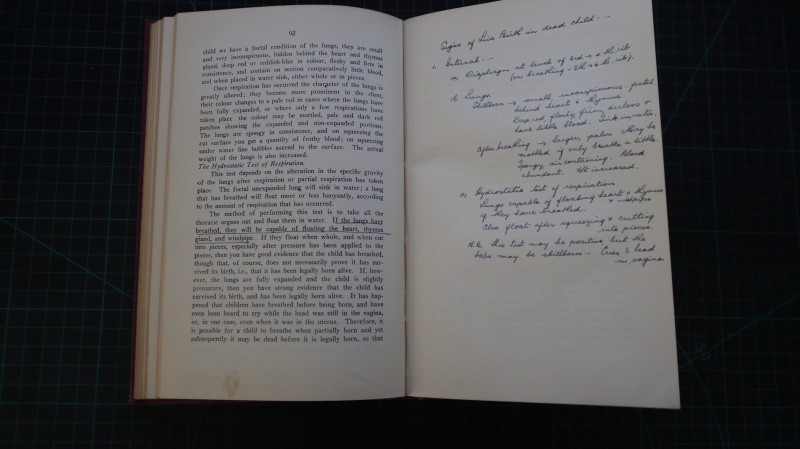 92
child we have a foetal condition of the lungs, they are small
and very inconspicuous, hidden behind the heart and thymus
gland, deep red or reddish-blue in colour, fleshy and firm in
consistence, and contain on section comparatively little blood,
and when placed in water sink, either whole or in pieces.
Once respiration has occurred the character of the lungs is
greatly altered; they become more prominent in the chest,
their colour changes to a pale red in cases where the lungs have
been fully expanded, or where only a few respirations have
taken place the colour may be mottled, pale and dark red
patches showing the expanded and non-expanded portions.
The lungs are spongy in consistence, and on squeezing the
cut surface you get a quantity of frothy blood; on squeezing
under water fine bubbles ascend to the surface. The actual
weight of the lungs is also increased.
The Hydrostatic Test of Respiration.
This test depends on the alteration in the specific gravity
of the lungs after respiration or partial respiration has taken
place. The foetal unexpanded lung will sink in water; a lung
that has breathed will float more or less buoyantly, according
to the amount of respiration that has occurred.
The method of performing this test is to take all the
thoracic organs out and float them in water. If the lungs have
breathed, they will be capable of floating the heart, thymus
gland, and windpipe. If they float when whole, and when cut
into pieces, especially after pressure has been applied to the
pieces, then you have good evidence that the child has breathed,
though that, of course, does not necessarily prove it has sur-
vived its birth, i.e., that it has been legally born alive. If, how-
ever, the lungs are fully expanded and the child is slightly
premature, then you have strong evidence that the child has
survived its birth, and has been legally born alive. It has hap-
pened that children have breathed before being born, and have
even been heard to cry while the head was still in the vagina,
or, in one case, even when it was in the uterus. Therefore, it
is possible for a child to breathe when partially born and yet
subsequently it may be dead before it is legally born, so that
Signs of Live Birth in dead child: -
1. Internal: -
a) Diaphragm at level of 3rd → 4th rib
(or breathing - 5th → 6th rib).
b) Lungs.
Stillborn → small, inconspicuous, foetal,
behind heart & thymus.
Deep red, fleshy, firm, airless &
have little blood. Sink in water.
After breathing → larger, paler. May be
mottled if only breathe a little
Spongy, air containing. Blood
abundant. Wt increased.
c) Hydrostatic test of respiration
Lungs capable of floating heart & thymus
& windpipe
if they have breathed.
Also float after squeezing & cutting
into pieces.
N.B. This test may be positive but the
babe may be stillborn - Cries c̄ head
in vagina